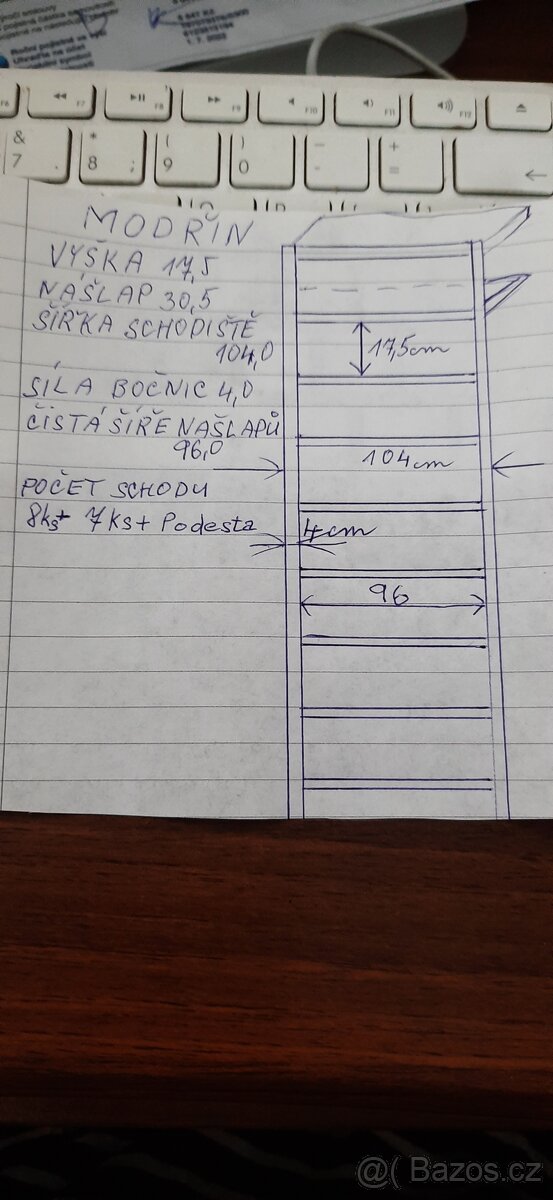 & 7
* 8 ;
( 9
) 0
- -
+ =
F7
F8
F9
F10
F11
F12
MODŘÍN
VÝŠKA 17,5
NÁŠLAP 30,5
ŠÍŘKA SCHODIŠTĚ
104,0
SÍLA BOČNIC 4,0
ČISTÁ ŠÍŘE NAŠLAPŮ
96,0
POČET SCHODU
8ks+ 7ks+ Podesta
17,5cm
104cm
4cm
96
@( Bazos.cz